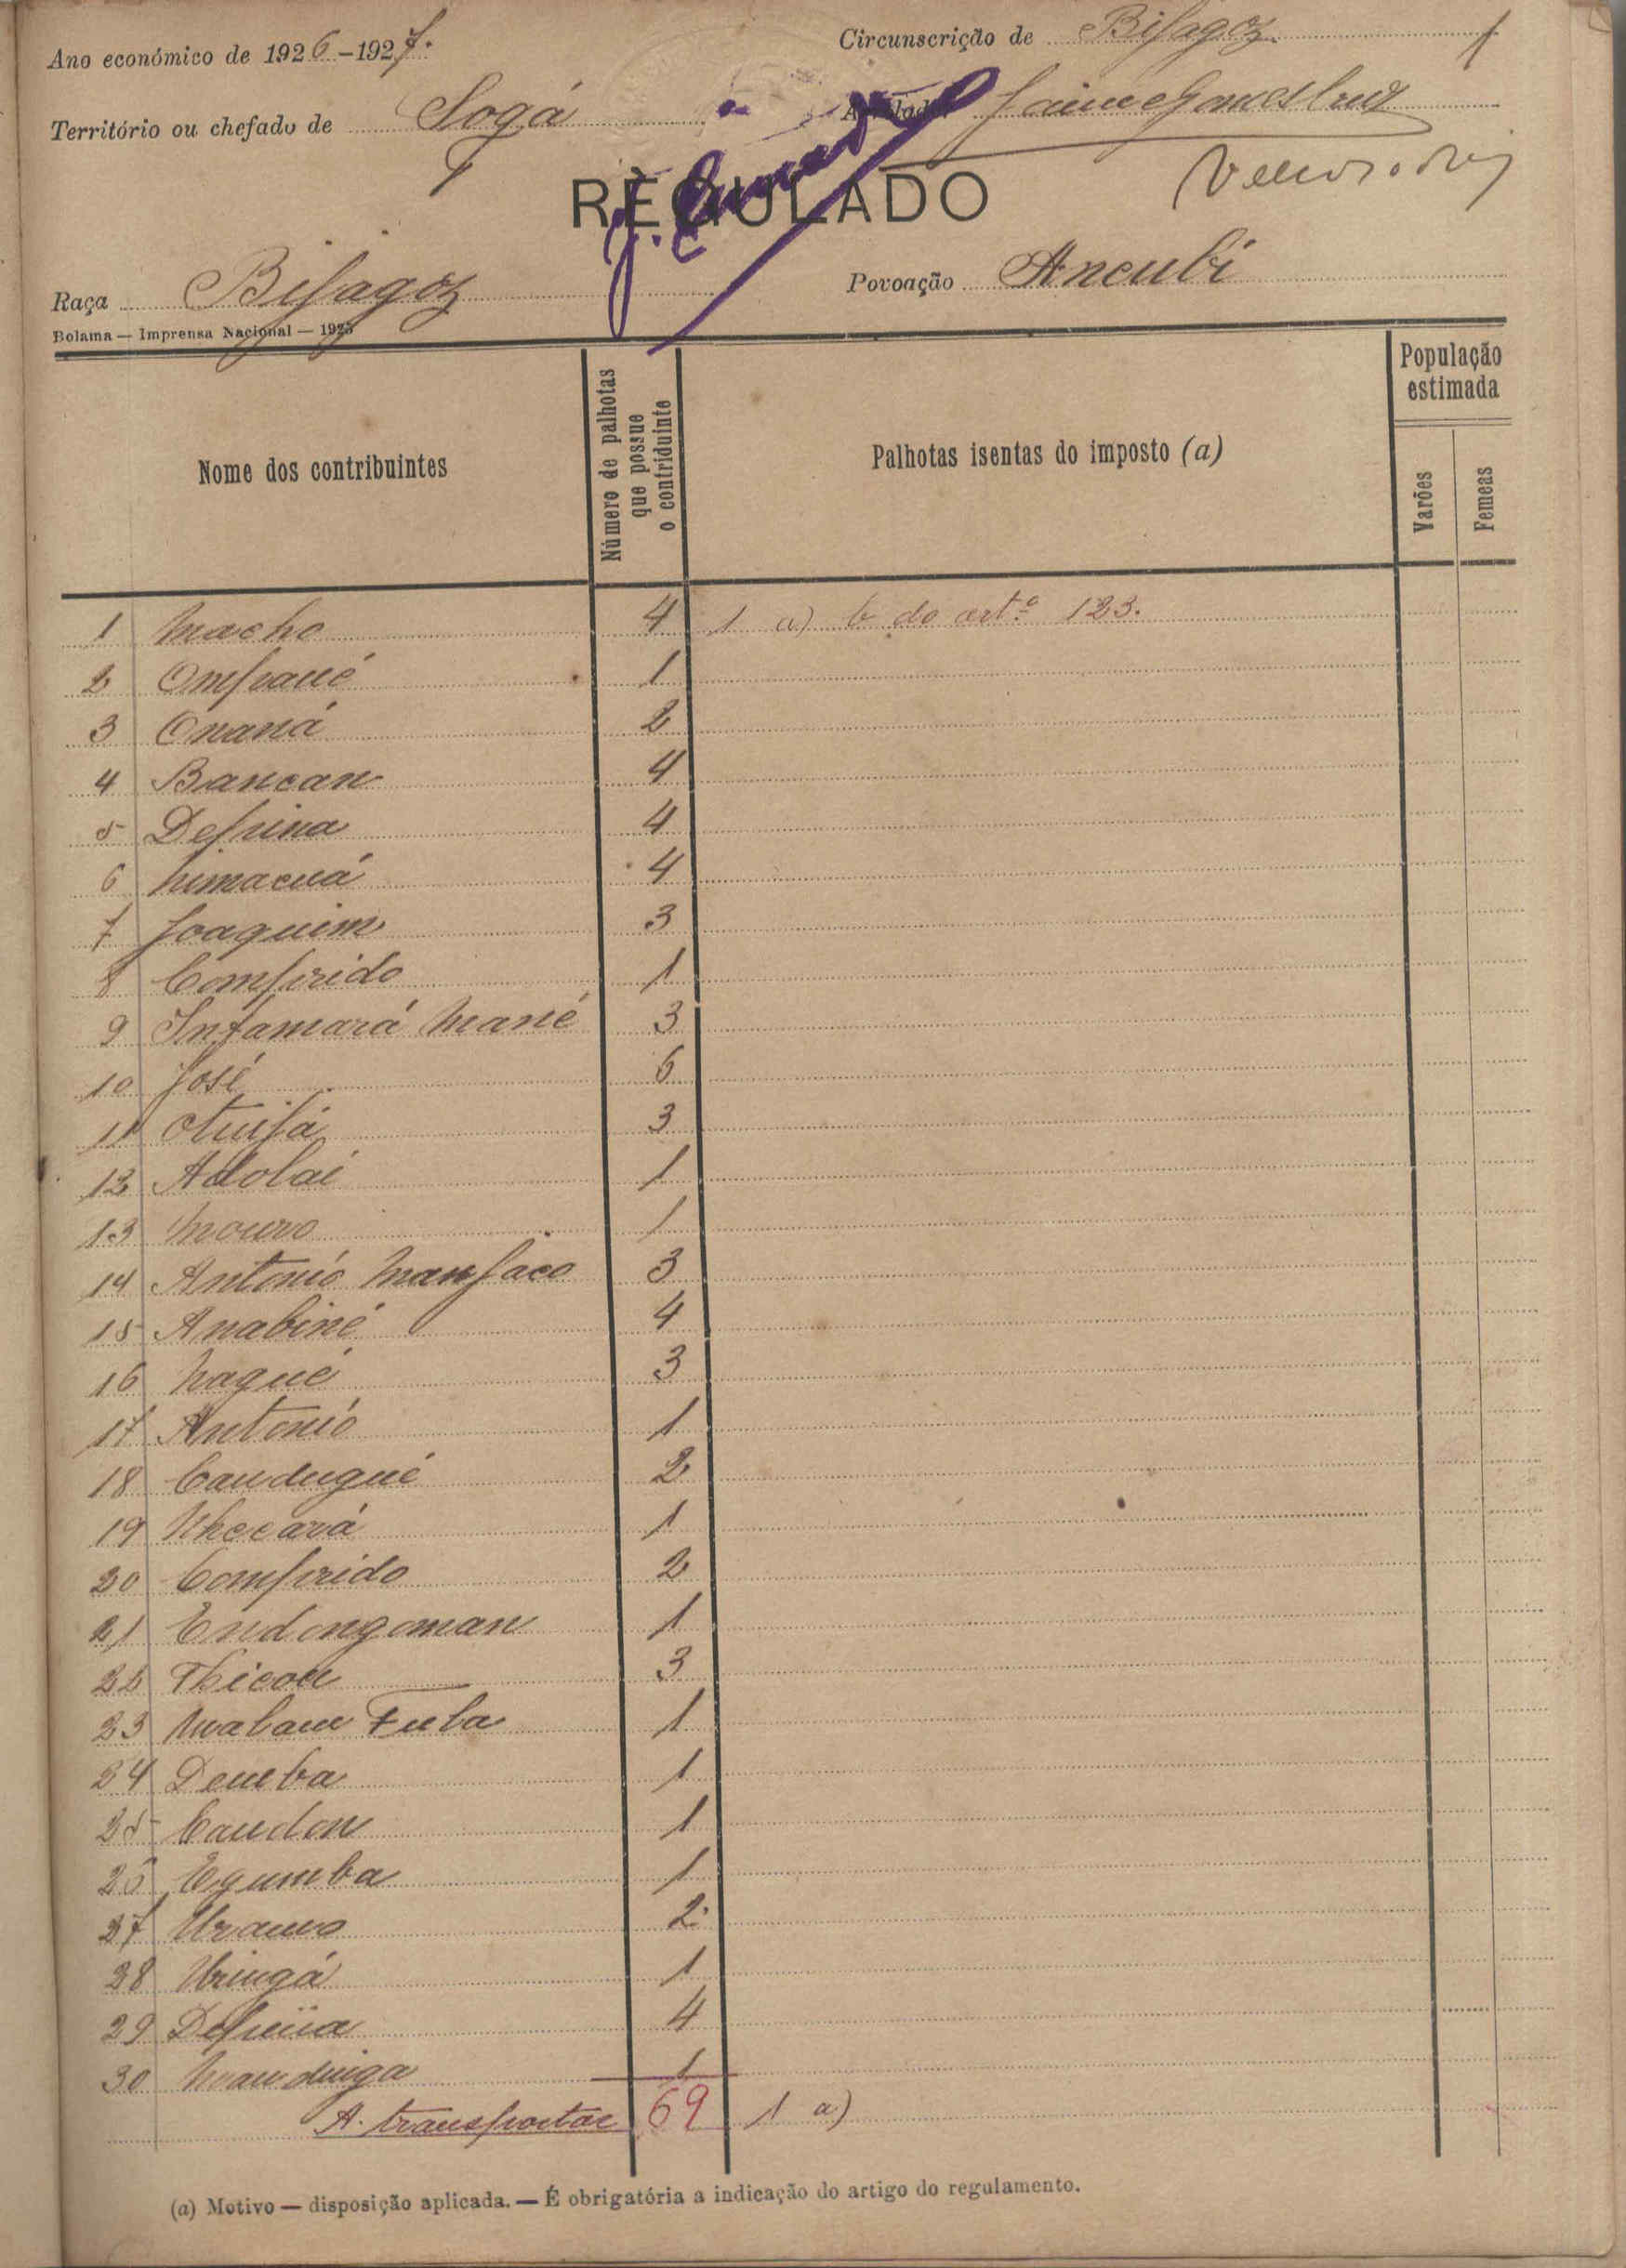 Ano económico de 1926-1927.
Circunscrição de Bijagoz.
1
Território ou chefado de Sogá
Jaime Gomes Cruz
RÈGULADO
Raça Bijagoz
Povoação Ancubi
Bolama — Imprensa Nacional — 1925
Nome dos contribuintes
Número de palhotas que possue o contriduinte
Palhotas isentas do imposto (a)
População estimada
Varões
Femeas
1 Macho 4 1 a) b do artº 123.
2 Ompané 1
3 Onaná 2
4 Bancan 4
5 Depina 4
6 Nimacuá 4
7 Joaquim 3
8 Comprido 1
9 Infamará Mané 3
10 José 6
11 3
12 Adolai 1
13 Mouro 1
14 António Manjaco 3
15 Anabiné 4
16 Naqué 3
17 António 1
18 Caudugué 2
19 Nhecará 1
20 Comprido 2
21 Endongoman 1
22 3
23 Malam Fula 1
24 Demba 1
25 Caudon 1
26 Egumba 1
27 2
28 1
29 4
30 Mandinga 1
A transportar 69 1 a)
(a) Motivo — disposição aplicada. — É obrigatória a indicação do artigo do regulamento.